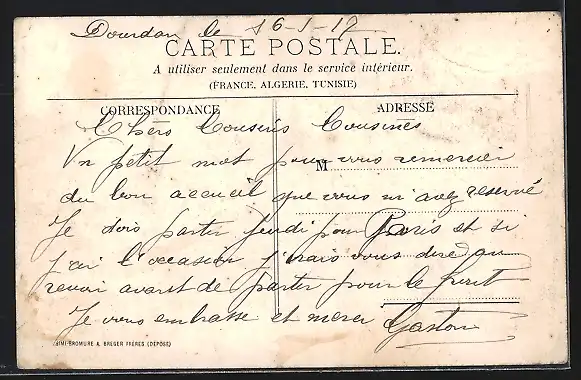 Dourdan le 16-1-17
CARTE POSTALE.
A utiliser seulement dans le service intérieur.
(FRANCE, ALGERIE, TUNISIE)
CORRESPONDANCE
ADRESSE
Chers Cousins Cousines
M
Un petit mot pour vous remercier
du bon accueil que vous m'avez reservé
Je dois partir jeudi pour Paris et si
j'ai l'occasion j'irais vous dire au
revoir avant de partir pour le front
Je vous embrasse et merci Gaston
SIMI-BROMURE A. BREGER FRÈRES (DÉPOSÉ)